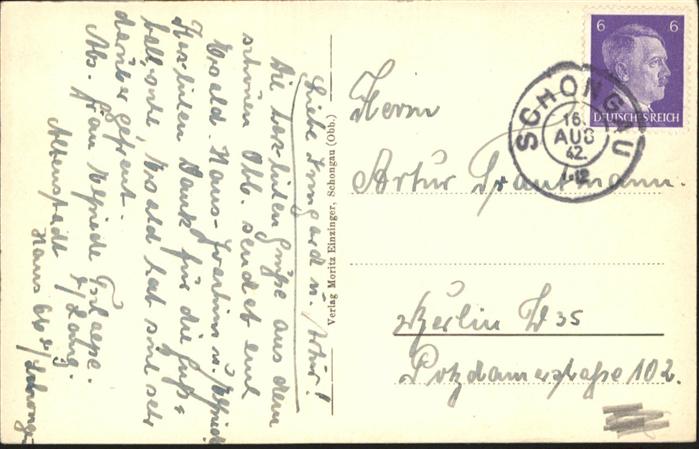 Liebe Irmgard u. Artur!
Die herzlichsten Grüße aus dem
schönen Obb. sendet euch
Wald. Hans-Joachim u.
Herzlichen Dank für die Fuß=
ballgarde, Wald hat sich sehr
darüber gefreut.
Abs. Frau
Altenstadt
Haus 66 /Schongau
Verlag Moritz Einzinger, Schongau (Obb.)
6 6
DEUTSCHES REICH
SCHONGAU
16.
AUG
42.
-12
Herrn
Artur Trautmann.
Berlin W 35
Potzdamerstraße 102.